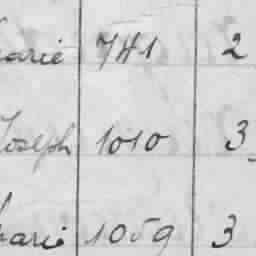 Marie 741 2
Joseph 1010 3
Marie 1059 3